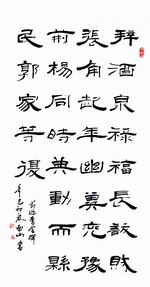 拜酒泉祿福長訞賊
張角起兵幽冀兗豫
荊楊同時並動而縣
民郭家等復
臨曹全碑
辛巳初山書